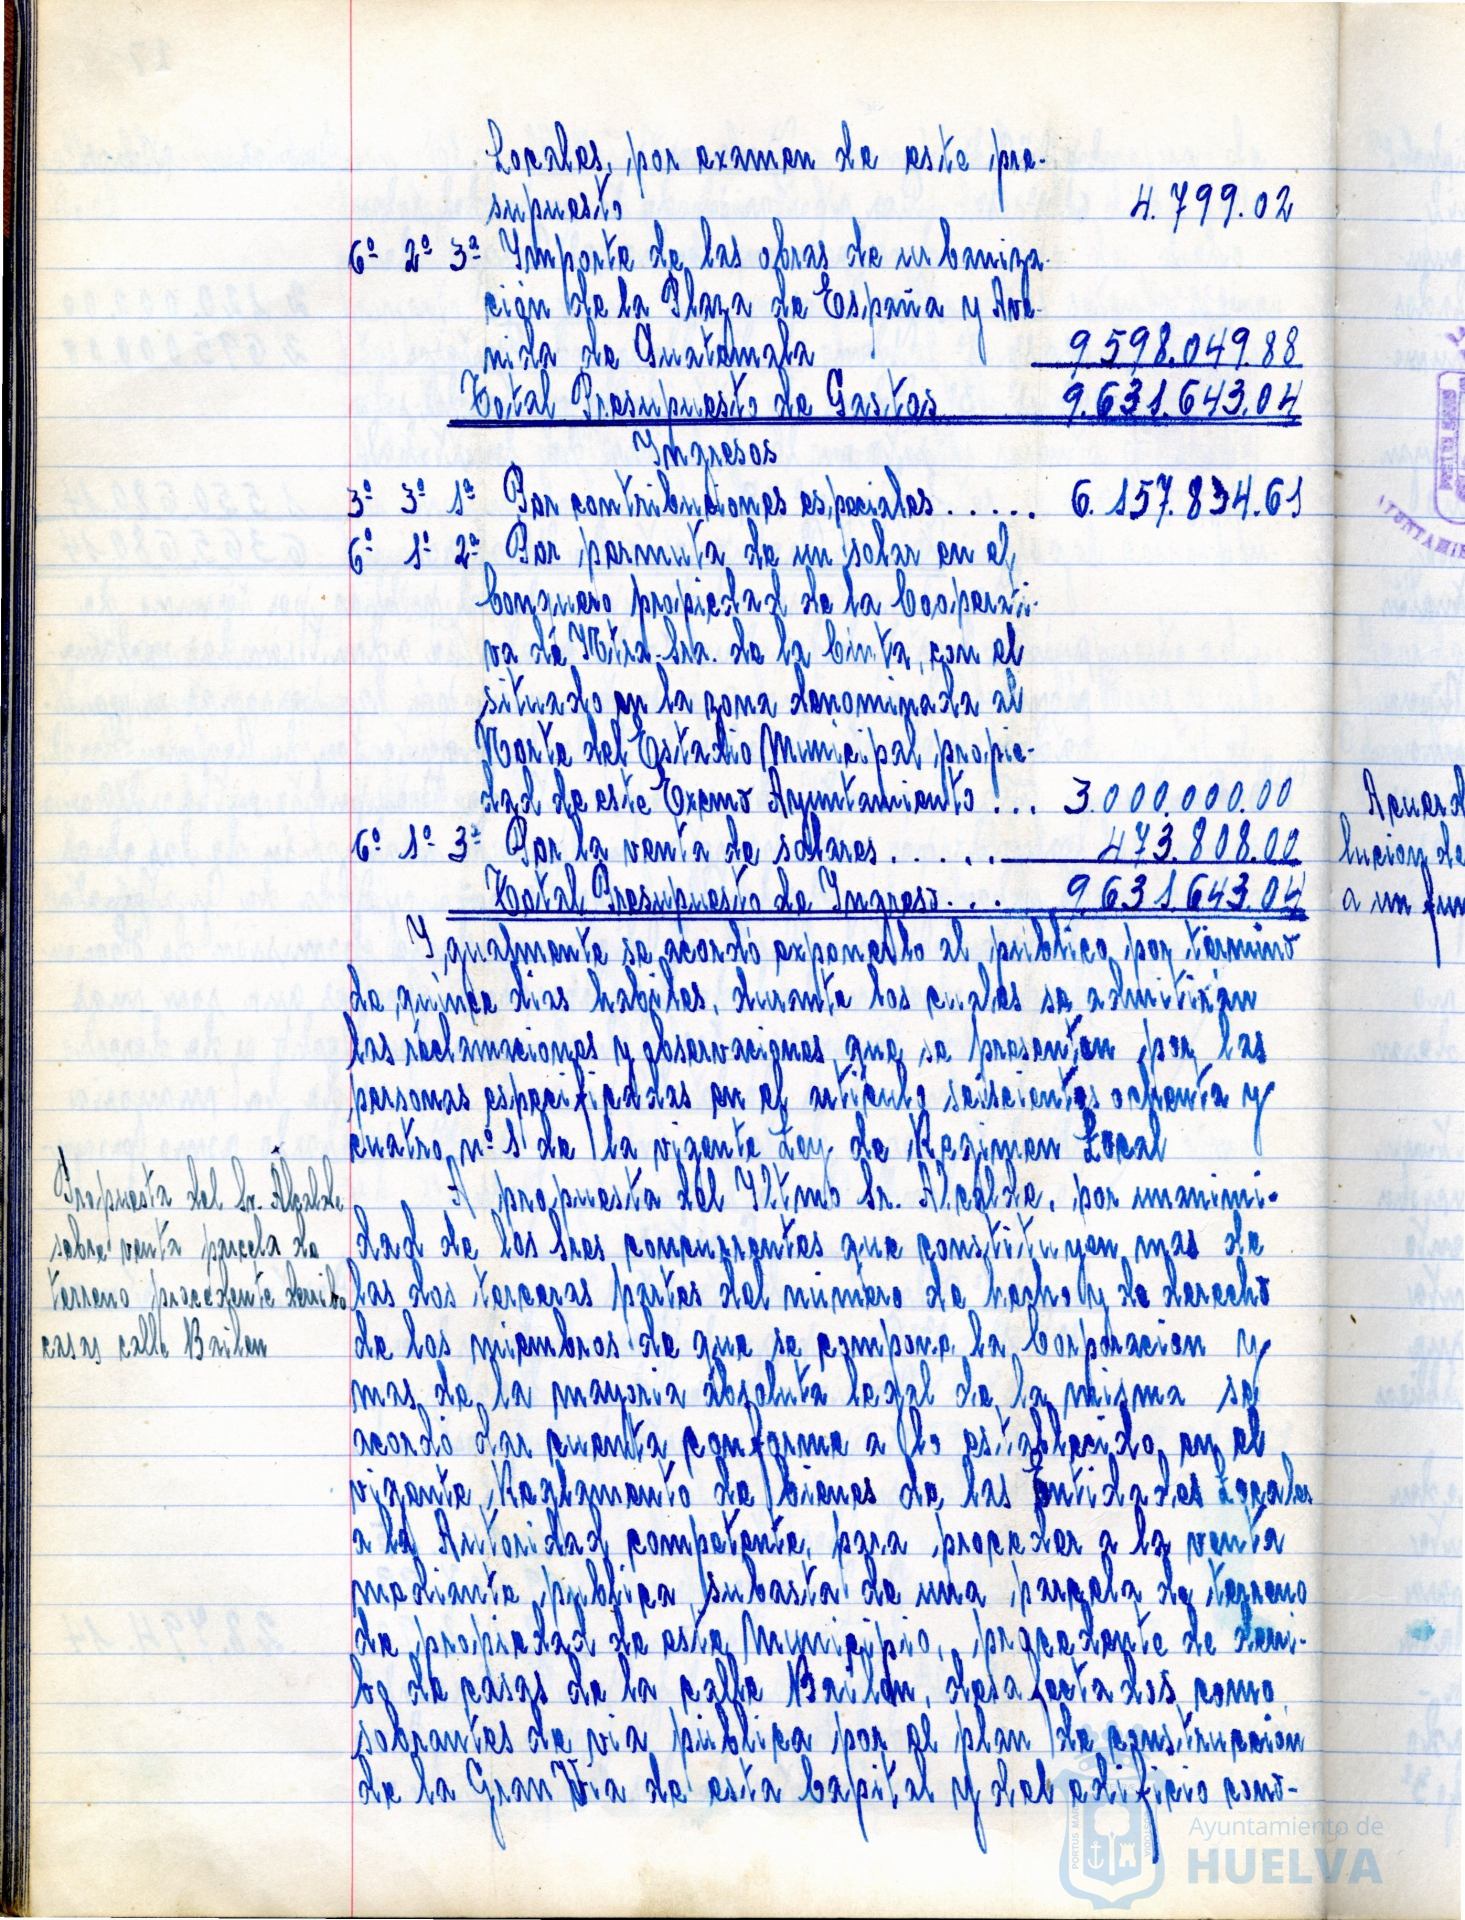 Locales, por examen de este pre-
supuesto 4.799.02
6º 2º 3º Importe de las obras de urbaniza-
ción de la Plaza de España y Ave-
nida de Guatemala 9.598.049.88
Total Presupuesto de Gastos 9.631.643.04
Ingresos
3º 3º 1º Por contribuciones especiales..... 6.157.834.61
6º 1º 2º Por permuta de un solar en el
Conquero propiedad de la Cooperati-
va de Ntra. Sra. de la Cinta, con el
situado en la zona denominada al
Norte del Estadio Municipal, propie-
dad de este Excmo Ayuntamiento... 3.000.000.00
6º 1º 3º Por la venta de solares...... 473.808.00
Total Presupuesto de Ingreso.... 9.631.643.04
Igualmente se acordó exponerlo al público por término
de quince dias habiles, durante los cuales se admitirán
las reclamaciones y observaciones que se presenten por las
personas especificadas en el articulo seiscientos ochenta y
cuatro nº 1 de la vigente Ley de Regimen Local
Propuesta del Sr. Alcalde
sobre venta parcela de
terreno procedente derribo
casas calle Bailen
A propuesta del Iltmo Sr. Alcalde, por unanimi-
dad de los Sres concurrentes que constituyen mas de
las dos terceras partes del numero de hecho y de derecho
de los miembros de que se compone la Corporacion y
mas de la mayoria absoluta legal de la misma se
acordó dar cuenta conforme a lo establecido en el
vigente Reglamento de bienes de las Entidades Locales
a la Autoridad competente, para proceder a la venta
mediante publica subasta de una parcela de terreno
de propiedad de este Municipio, procedente de derri-
bo de casas de la calle Bailen, desafectados como
sobrantes de via publica por el plan de construcción
de la Gran Via de esta Capital y del edificio cono-
Acuerd
lucion de
a un fun
Ayuntamiento de
HUELVA